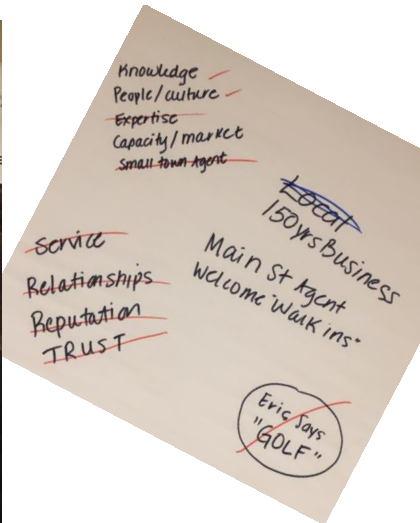 Knowledge
People/culture
Expertise
Capacity/market
Small town Agent
Local
150yrs Business
Main St Agent
Welcome "Walk ins"
Service
Relationships
Reputation
TRUST
Eric Says
"GOLF"